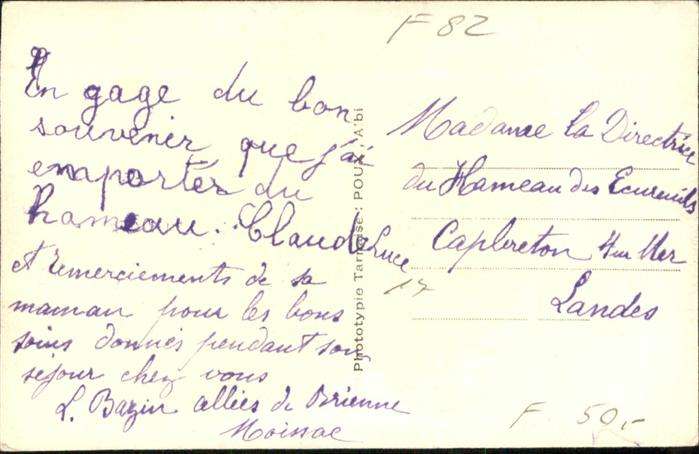 F 82
En gage du bon
souvenir que j'ai
emportés du
hameau. Claude Luce
et remerciements de sa
maman pour les bons
soins donnés pendant son
séjour chez vous
L. Bazin allées de Brienne
Moissac
Phototypie Tarnaise : POUX, Albi
Madame La Directrice
du Hameau des Ecureuils
Capbreton s/ Mer
Landes
17
F 50,-